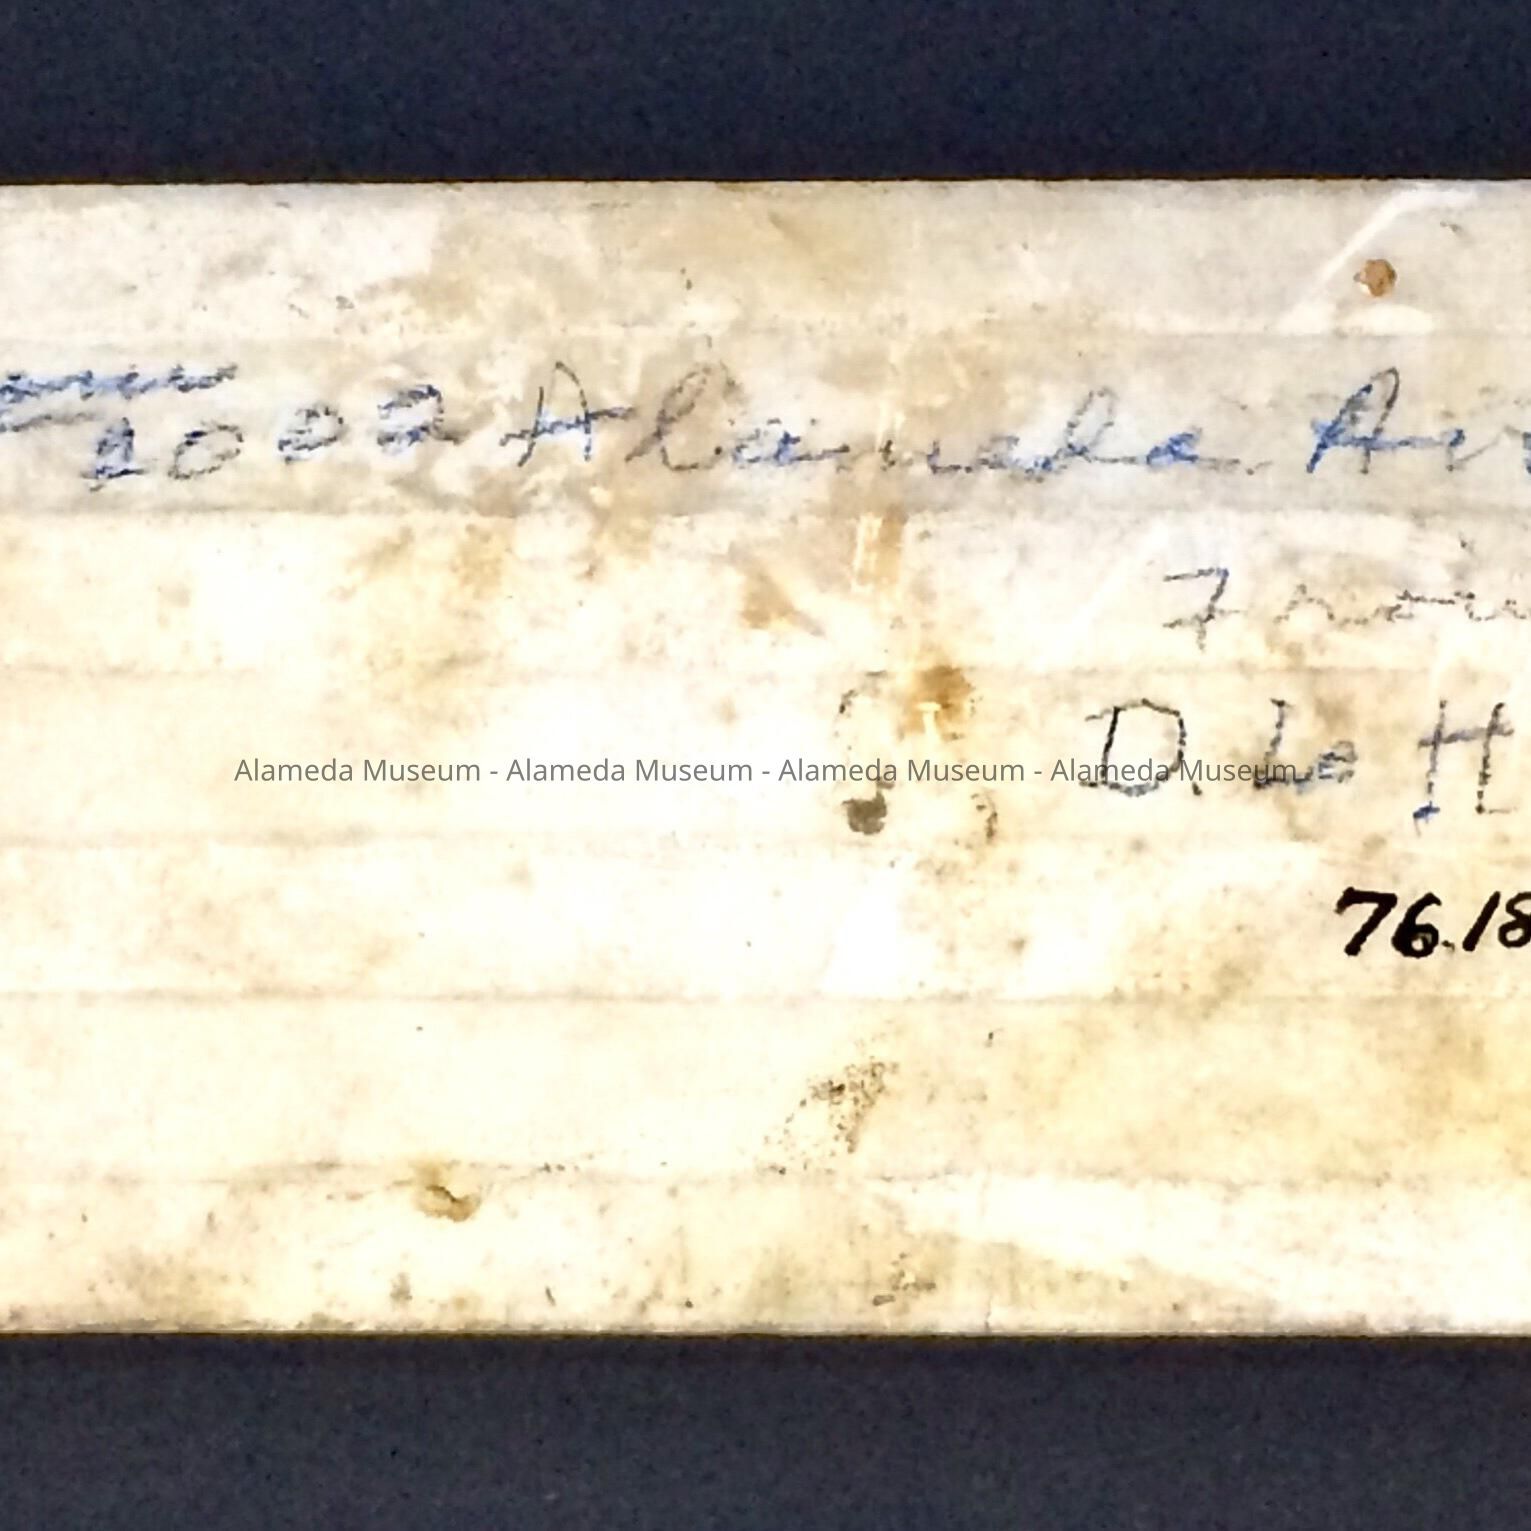 2002 Alameda Av
From
D. Le H
Alameda Museum - Alameda Museum - Alameda Museum - Alameda Museum
76.18